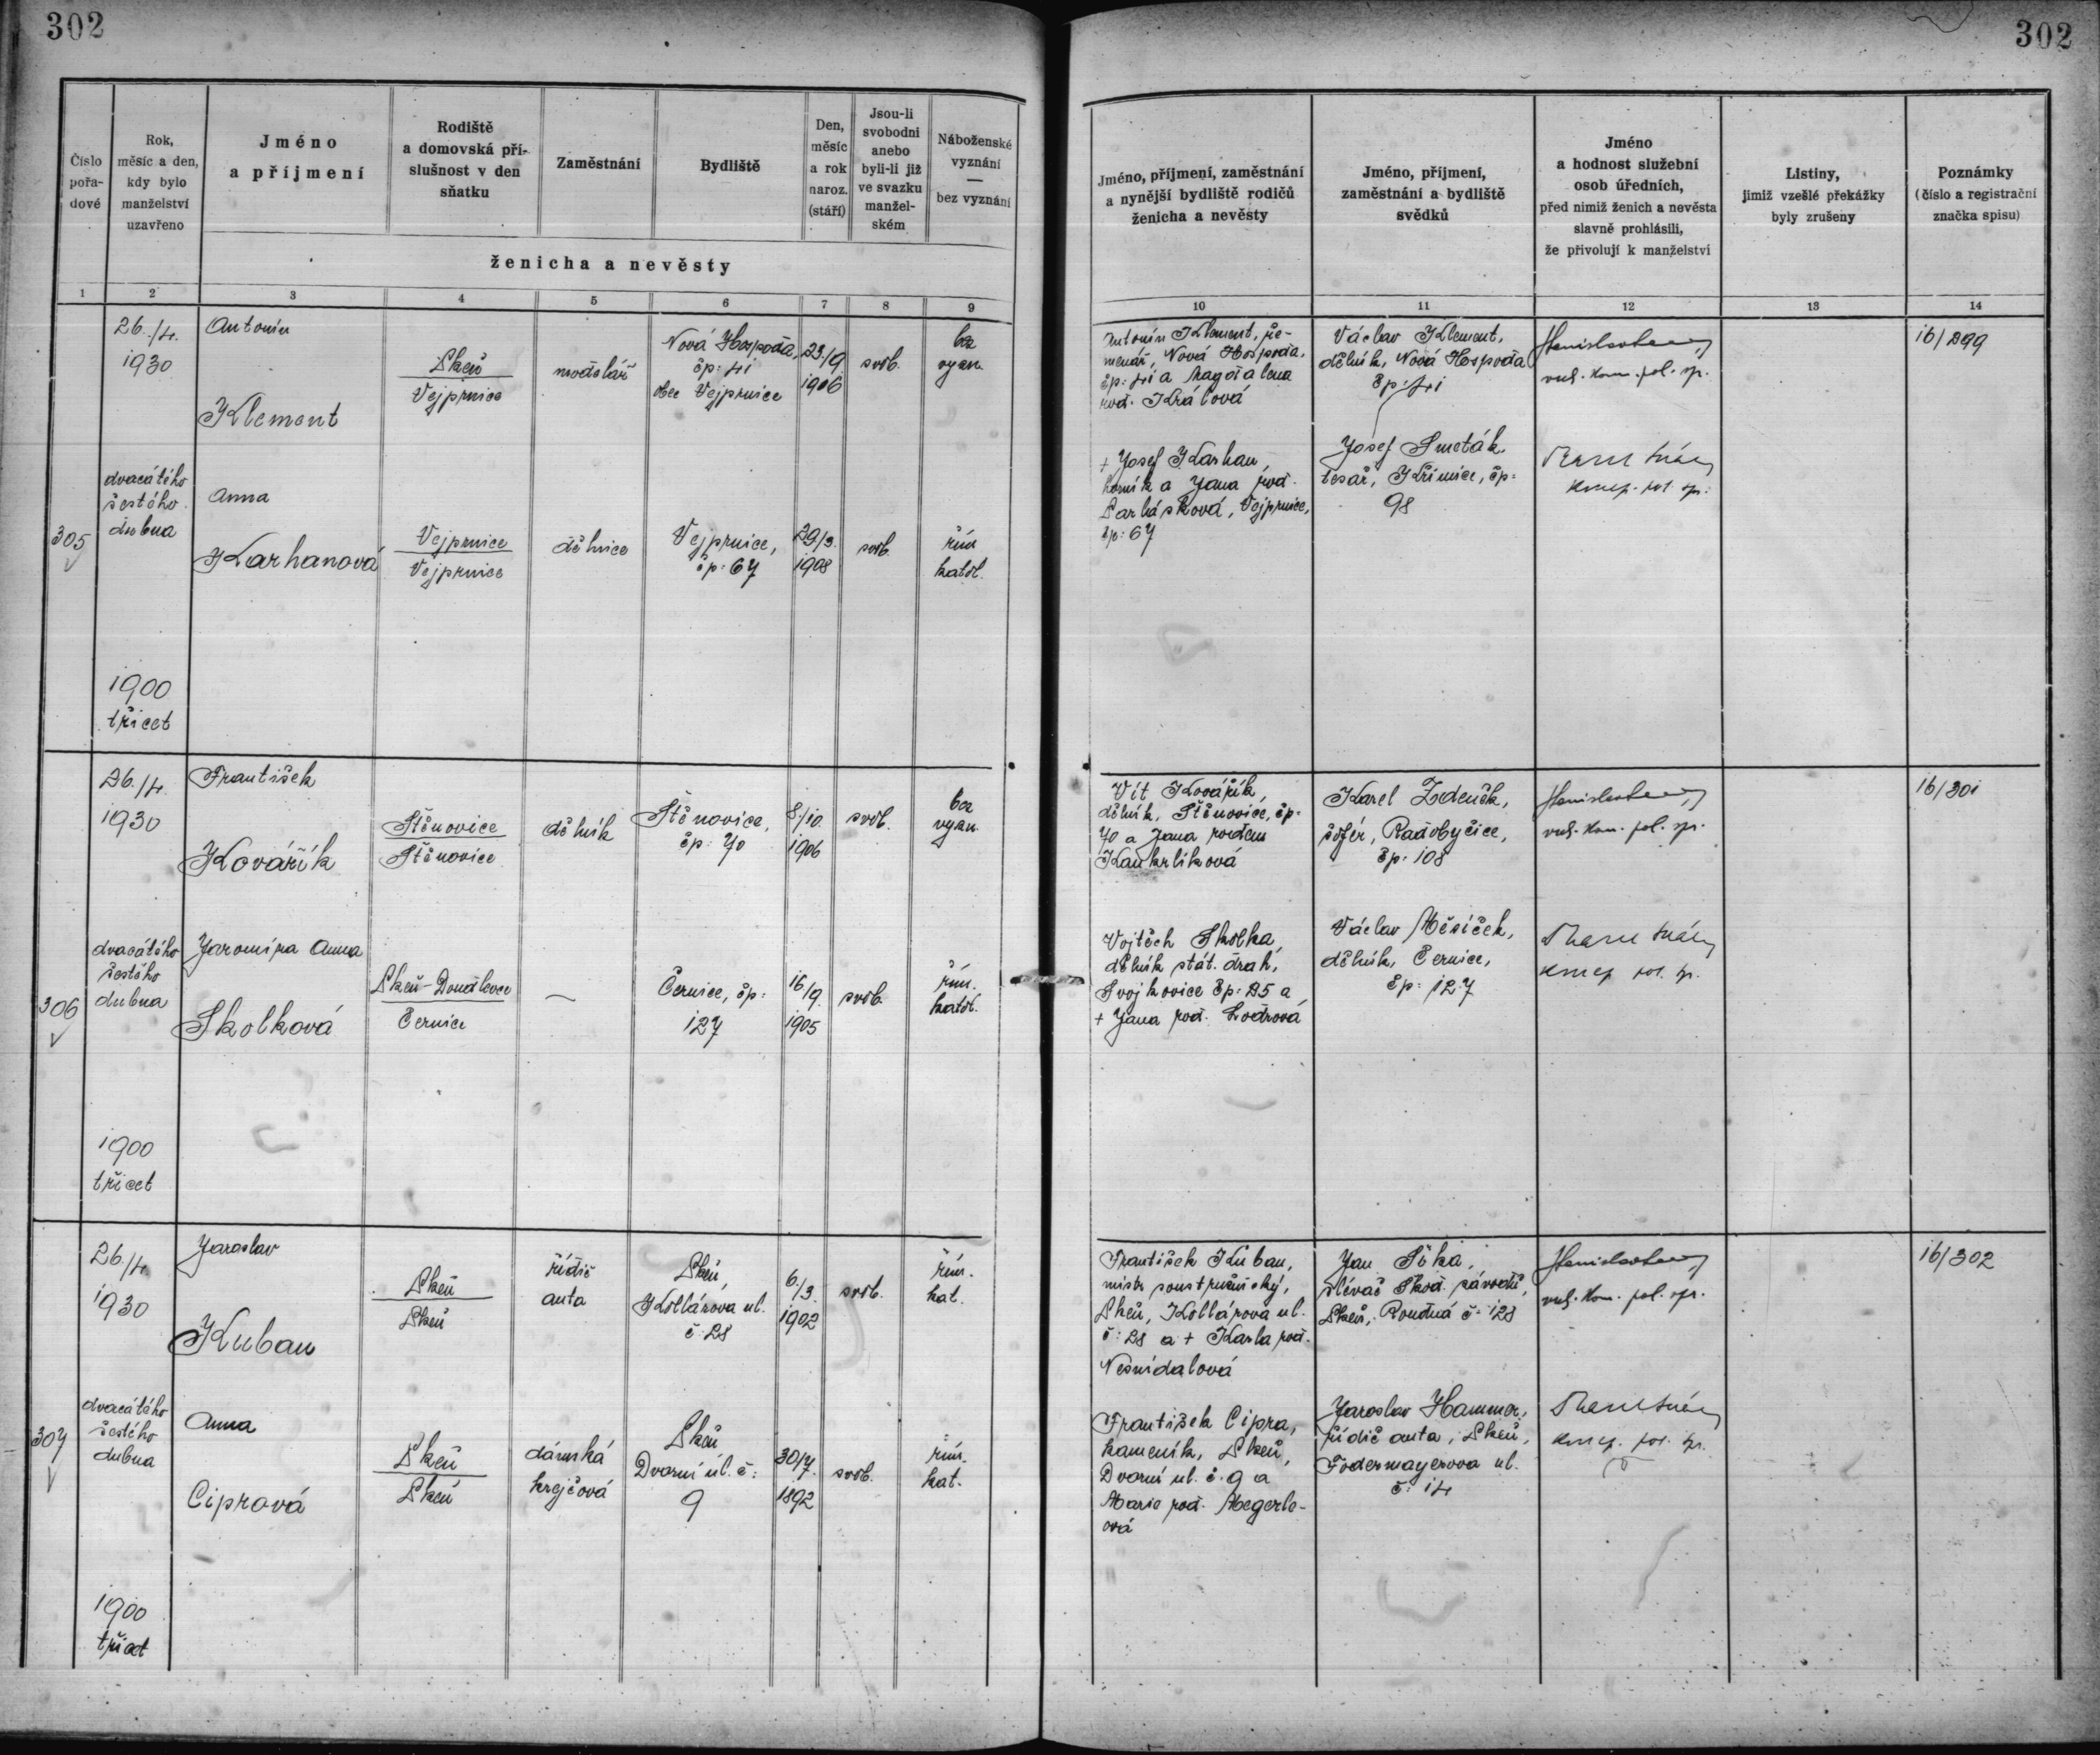 302
302
Číslo pořadové
Rok, měsíc a den, kdy bylo manželství uzavřeno
Jméno a příjmení
Rodiště a domovská příslušnost v den sňatku
Zaměstnání
Bydliště
Den, měsíc a rok naroz. (stáří)
Jsou-li svobodni anebo byli-li již ve svazku manželském
Náboženské vyznání — bez vyznání
ženicha a nevěsty
Jméno, příjmení, zaměstnání a nynější bydliště rodičů ženicha a nevěsty
Jméno, příjmení, zaměstnání a bydliště svědků
Jméno a hodnost služební osob úředních, před nimiž ženich a nevěsta slavně prohlásili, že přivolují k manželství
Listiny, jimiž vzešlé překážky byly zrušeny
Poznámky (číslo a registrační značka spisu)
1 2 3 4 5 6 7 8 9 10 11 12 13 14
305
26./4.
1930
dvacátého
šestého
dubna
1900
třicet
Antonín
Klement
Vejprnice
modelář
Nová Hospoda,
čp: 41
obec Vejprnice
23./9
1906
svob.
bez
vyzn.
Anna
Karhanová
Vejprnice
Vejprnice
dělnice
Vejprnice,
čp: 67
29/3.
1908
svob.
řím
katol.
Antonín Klement, ře-
menář, Nová Hospoda,
čp: 41 a Magdalena
rod. Králová
+ Josef Karhan,
horník a Jana rod.
Vejprnice,
čp: 67
Václav Klement,
dělník, Nová Hospoda
čp: 41
Josef Smeták
tesař, Křimice, čp:
98
16/299
306
26./4.
1930
dvacátého
šestého
dubna
1900
třicet
František
Kovářík
Štěnovice
Štěnovice
dělník
Štěnovice,
čp: 70
8/10.
1906
svob.
bez
vyzn.
Jaromíra Anna
Skolková
Černice
Černice, čp:
127
16/9.
1905
svob.
řím.
katol.
Vít Kovářík,
dělník, Štěnovice, čp:
70 a Jana rodem
Kaukrlíková
Vojtěch Skolka,
dělník stát. drah,
Svojkovice čp: 25 a
+ Jana rod. Lodrová
Karel Zedeněk,
šofér, Radobyčice,
čp: 108
Václav Měsíček,
dělník, Černice,
čp: 127
16/301
307
26./4.
1930
dvacátého
šestého
dubna
1900
třicet
Jaroslav
Kuban
řidič
auta
Kollárova ul.
č: 28
6./3.
1902
svob.
řím.
kat.
Anna
Ciprová
dámská
krejčová
Dvorní ul. č:
9
30/7.
1892
svob.
řím.
kat.
František Kuban,
mistr soustružnický,
Kollárova ul.
č: 28 a + Karla rod.
Nesnídalová
František Cipra,
kameník,
Dvorní ul. č. 9 a
Marie rod. Megerle-
ová
Jan Sika,
slévač Škod. závodů,
Roudná č: 128
Jaroslav Hammer,
řidič auta,
Fodermayerova ul.
č: 14
16/302